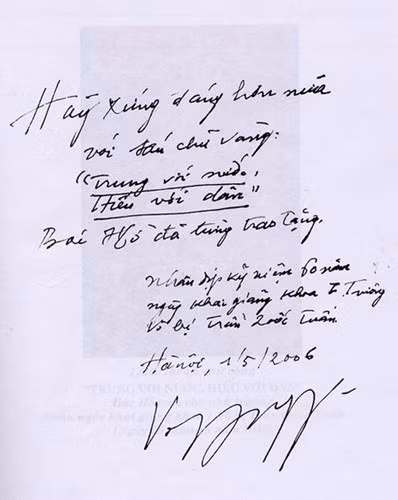 Hãy xứng đáng hơn nữa
với sáu chữ vàng:
"Trung với nước,
Hiếu với dân"
Bác Hồ đã từng trao tặng.
Nhân dịp kỷ niệm 60 năm
ngày khai giảng khóa I Trường
Võ bị Trần Quốc Tuấn
Hà Nội, 1/5/2006
"TRUNG VỚI NƯỚC, HIẾU VỚI DÂN"